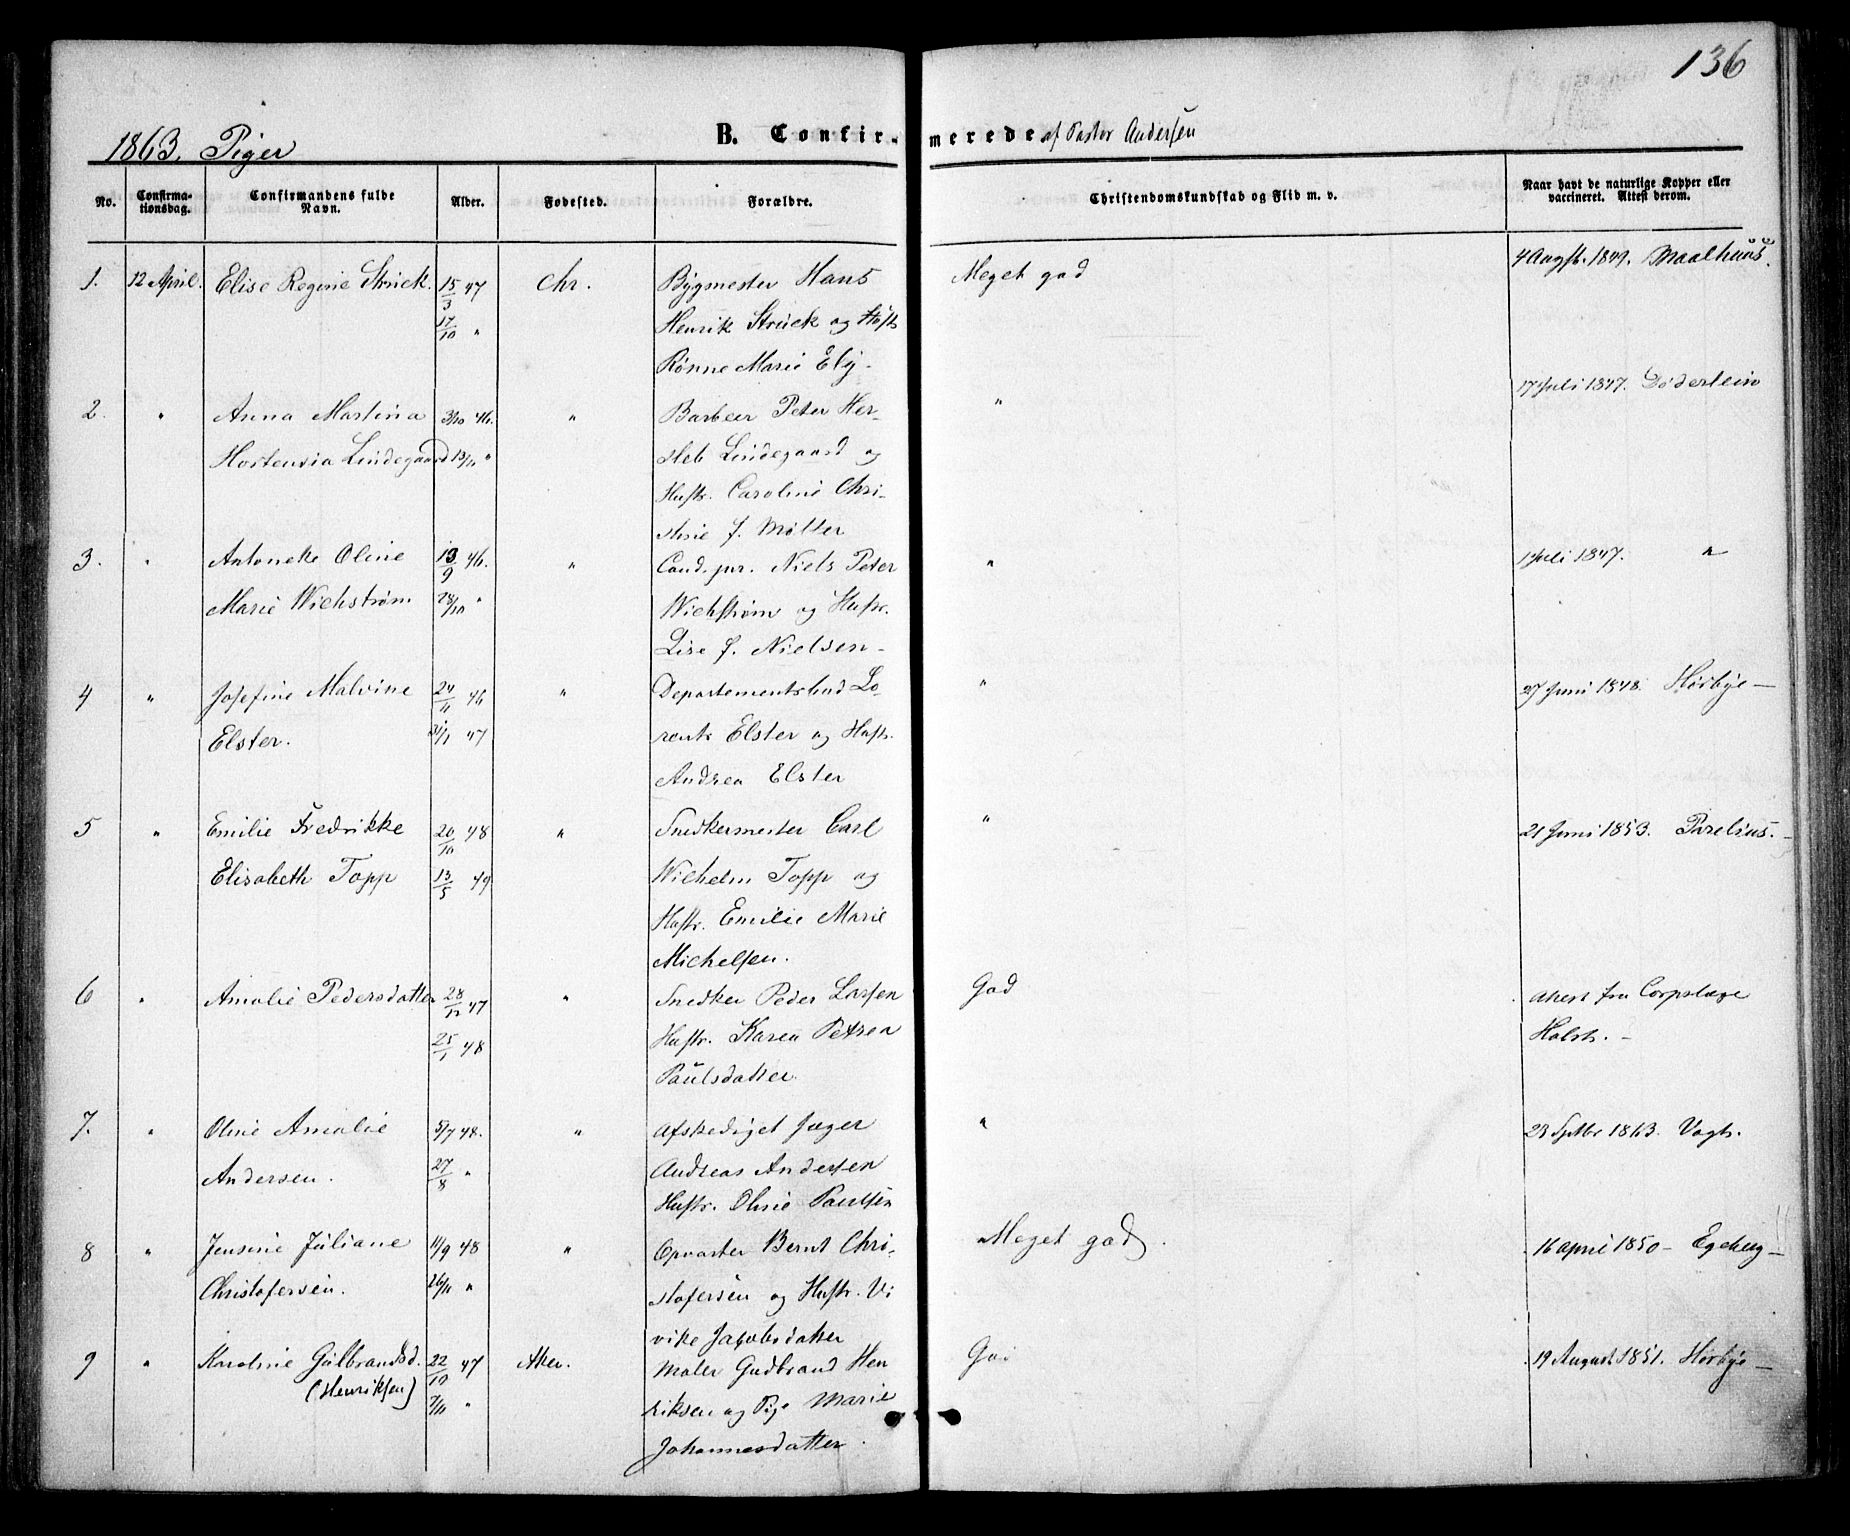 136
1863. Piger
B. Confirmerede af Pastor Andersen
No.
Confirmationsdag.
Confirmandens fulde Navn.
Alder.
Fødested.
Forældre.
Christendomskundskab og Flid m. v.
Naar havt de naturlige Kopper eller vaccineret. Attest derom.
1. 12 April. Elise Regine Strück. 15/3 47 Chr. Bygmester Hans Meget god 4 Augst. 1849. Maalhuus.
17/10 " Henrik Strück og Hustr
Rønne Marie Ely.
2. " Anna Martina 3/10 46. " Barbeer Peter Her- " 17 Juli 1847. Døderlein
Hortensia Lindegaard 13/11 " sleb Lindegaard og
Hustr. Caroline Chri-
stine f. Møller
3. " Antonette Oline 19/9 46. " Cand. jur. Niels Peter " 1 Juli 1847. "
Marie Wichstrøm 28/10 " Wichstrøm og Hustr.
Lise f. Nielsen
4 " Josefine Malvine 24/11 46 " Departementsbud Lo- " 27 Juni 1848. Hørbye
Elster. 31/1 47 rents Elster og Hustr.
Andrea Elster
5 " Emilie Fredrikke 20/10 48 " Snedkermester Carl " 21 Juni 1853. Parelius.
Elisabeth Topp 13/5 49 Wilhelm Topp og
Hustr. Emilie Marie
Michelsen.
6 " Amalie Pedersdatter 28/12 47 " Snedker Peder Larsen God Attest fra Corpslæge
25/1 48 Hustr. Karen Petrea Holst.
Paulsdatter.
7. " Oline Amalie 5/7 48. " Afskediget Jæger " 23 Septbr 1863. Vogt.
Andersen. 27/8 " Andreas Andersen
Hustr. Oline Paulsen
8 " Jensine Juliane 11/9 48 " Opvarter Bernt Chri- Meget god. 16 April 1850 Egeberg
Christofersen. 26/11 " stofersen og Hustr. Vi
vike Jacobsdatter
9 " Karoline Gulbrandsd. 22/10 47 Aker. Maler Gudbrand Hen God 19 August 1851. Hørbye
(Henriksen) 7/11 " riksen og Pige Marie
Johannesdatter.